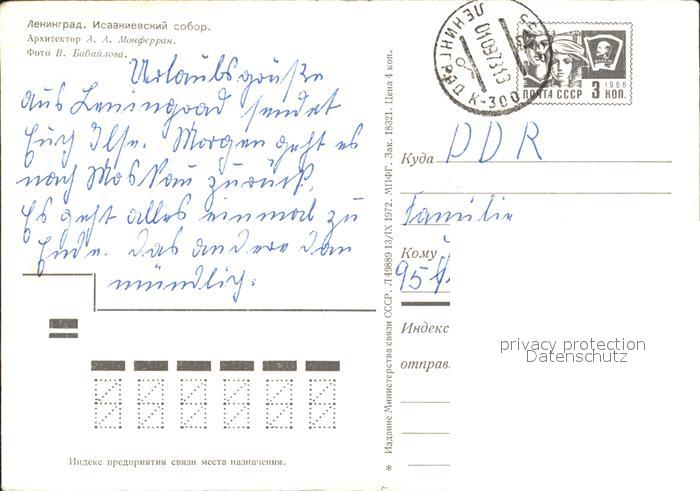 Ленинград. Исаакиевский собор.
Архитектор А. А. Монферран.
Фото В. Бабайлова.
Urlaubsgrüße
aus Leningrad sendet
Euch Ilse. Morgen geht es
nach Moskau zurück.
Es geht alles einmal zu
Ende. Das andere dan
mündlich.
Индекс предприятия связи места назначения.
* Издание Министерства связи СССР. Л 49889 13/IX 1972. МПФГ. Зак. 18321. Цена 4 коп.
ЛЕНИНГРАД К-300
010973 13
ПОЧТА СССР 3 КОП.
1966
Куда DDR
Familie
Кому
95
Индекс
отправ
privacy protection
Datenschutz